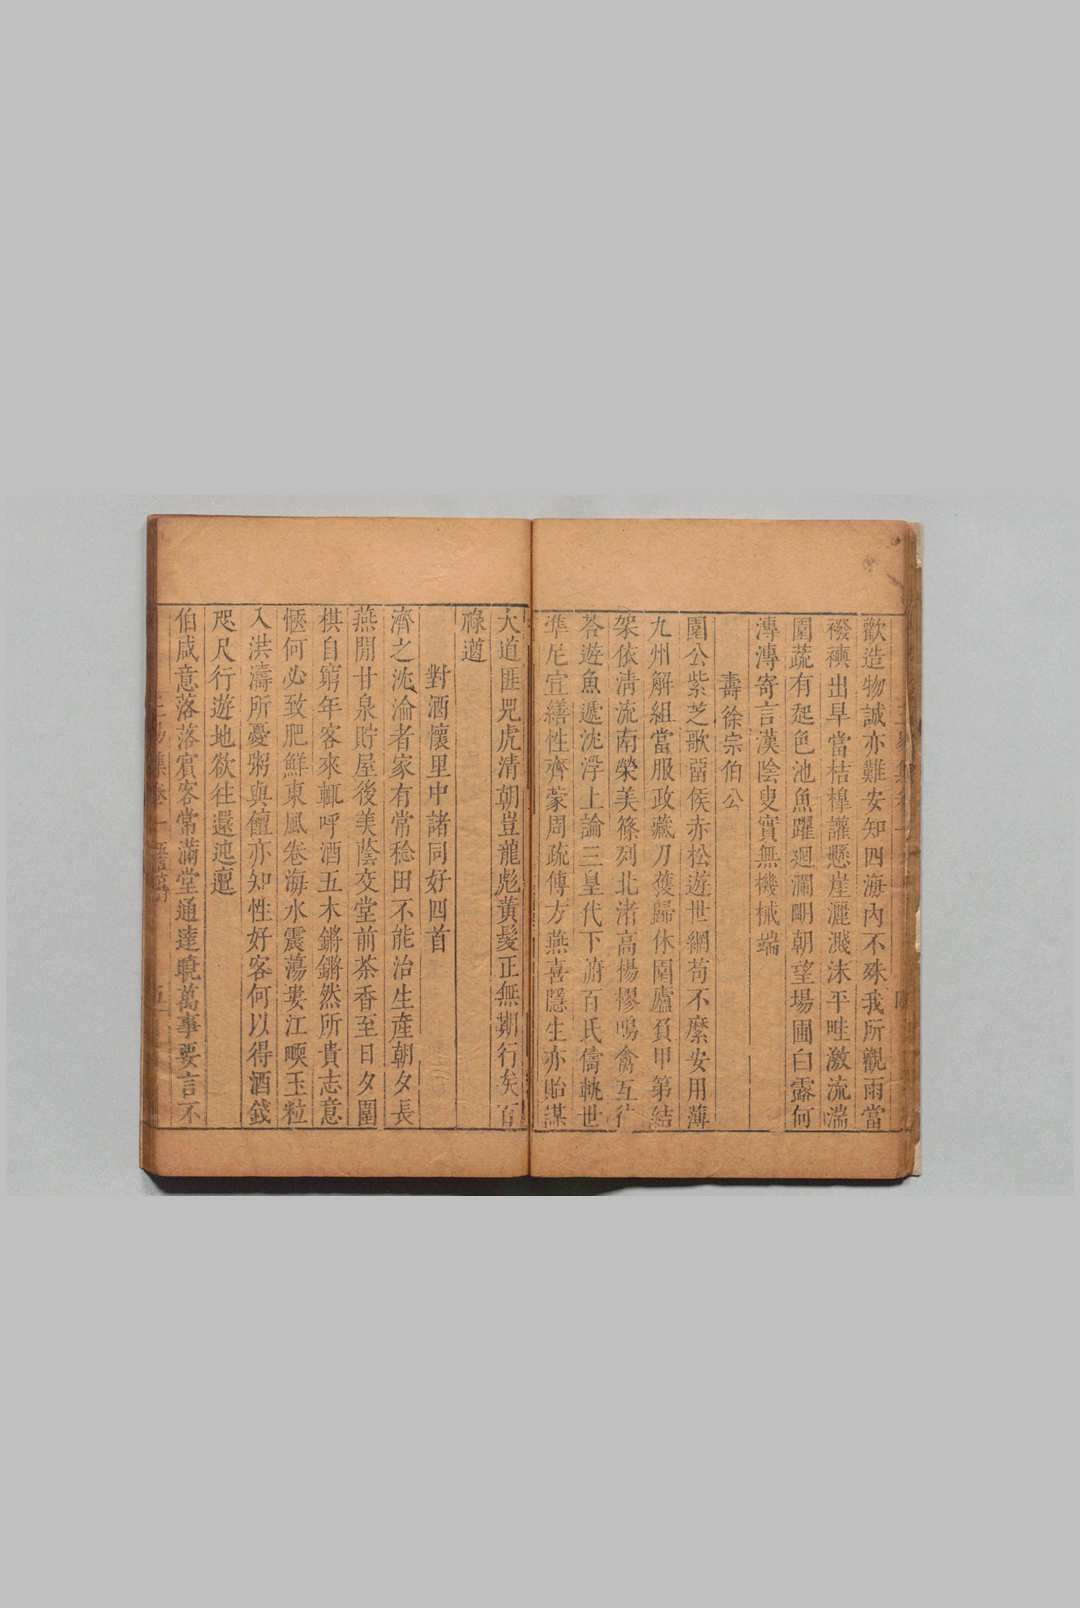 歡造物誠亦難安知四海內不殊我所觀雨當
襏襫出旱當桔橰讙懸崖灑濺沫平畦激流湍
園蔬有起色池魚躍迴瀾明朝望場圃白露何
漙漙寄言漢陰叟實無機械端
壽徐宗伯公
園公紫芝歌留侯赤松遊世網苟不縻安用薄
九州解組當服政藏刀獲歸休園廬負甲第結
架依清流南榮美篠列北渚高楊樛鳴禽互往
荅遊魚遞沈浮上論三皇代下俯百氏儔軌世
準尼宣繕性齊蒙周疏傅方燕喜隱生亦貽謀
大道匪兕虎清朝豈龍彪黃髮正無期行矣百
祿遒
對酒懷里中諸同好四首
濟之沈淪者家有常稔田不能治生產朝夕長
燕閒廿泉貯屋後美蔭交堂前茶香至日夕圍
棋自窮年客來輒呼酒五木鏘鏘然所貴志意
愜何必致肥鮮東風卷海水震蕩婁江堧玉粒
入洪濤所憂粥與饘亦知性好客何以得酒錢
咫尺行遊地欲往還迍邅
伯咸意落落賓客常滿堂通達睨萬事要言不
集卷一
五